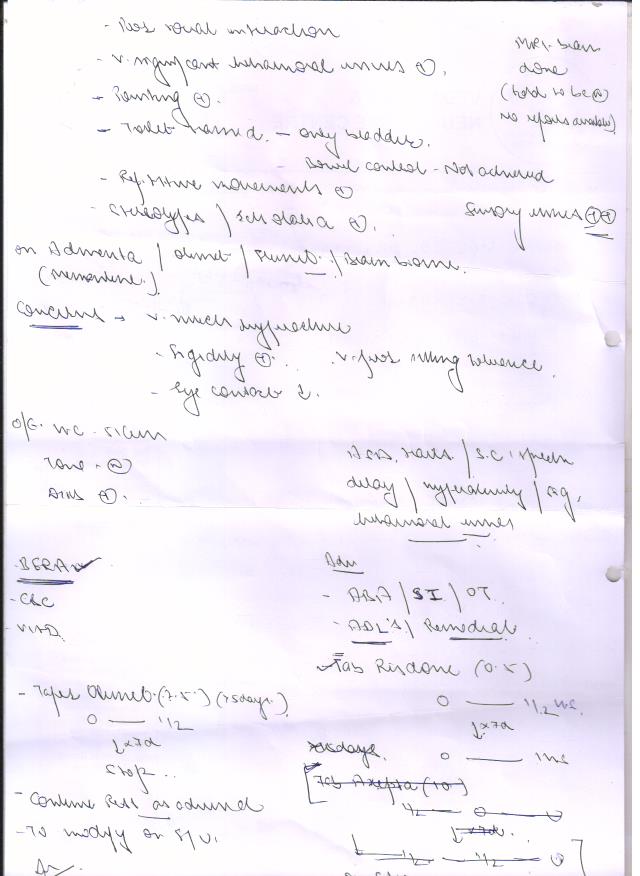 - Poor social interaction
- V. significant behavioral issues ⊕.
MRI-brain
done
(told to be Ⓝ
no reports available)
- Pointing ⊕.
- Toilet trained. - only bladder.
- Bowel control - Not achieved
- Repetitive movements ⊕
- Stereotypes / echolalia ⊕.
Sensory issues ⊕⊕
on Admenta / Olimelt / / Brain
(memantine.)
Concerns → v. much hyperactive
- Rigidity ⊕.
. v. poor sitting tolerance.
- Eye contact ↓.
O/E. HC -
Tone - Ⓝ
⊕.
ASD, traits / S.C. speech
delay / hyperactivity / sig.
behavioral issues
- BERA ✓
- CBC
- VitD
Adv
- ABA / SI / OT
- ADL's / Remedial
- Tab Risdone (0.5)
0 — 1/2 HS.
↓x7d
0 — 1 HS
- Taper Olimelt. (7.5) (15days.)
0 — 1/2
↓x7d
Stop..
x15days.
Tab Axepta (10)
1/2 — 0 — 0
↓x7d.
1/2 — 1/2 — 0
- Continue Rest as advised
- To modify on F/U.